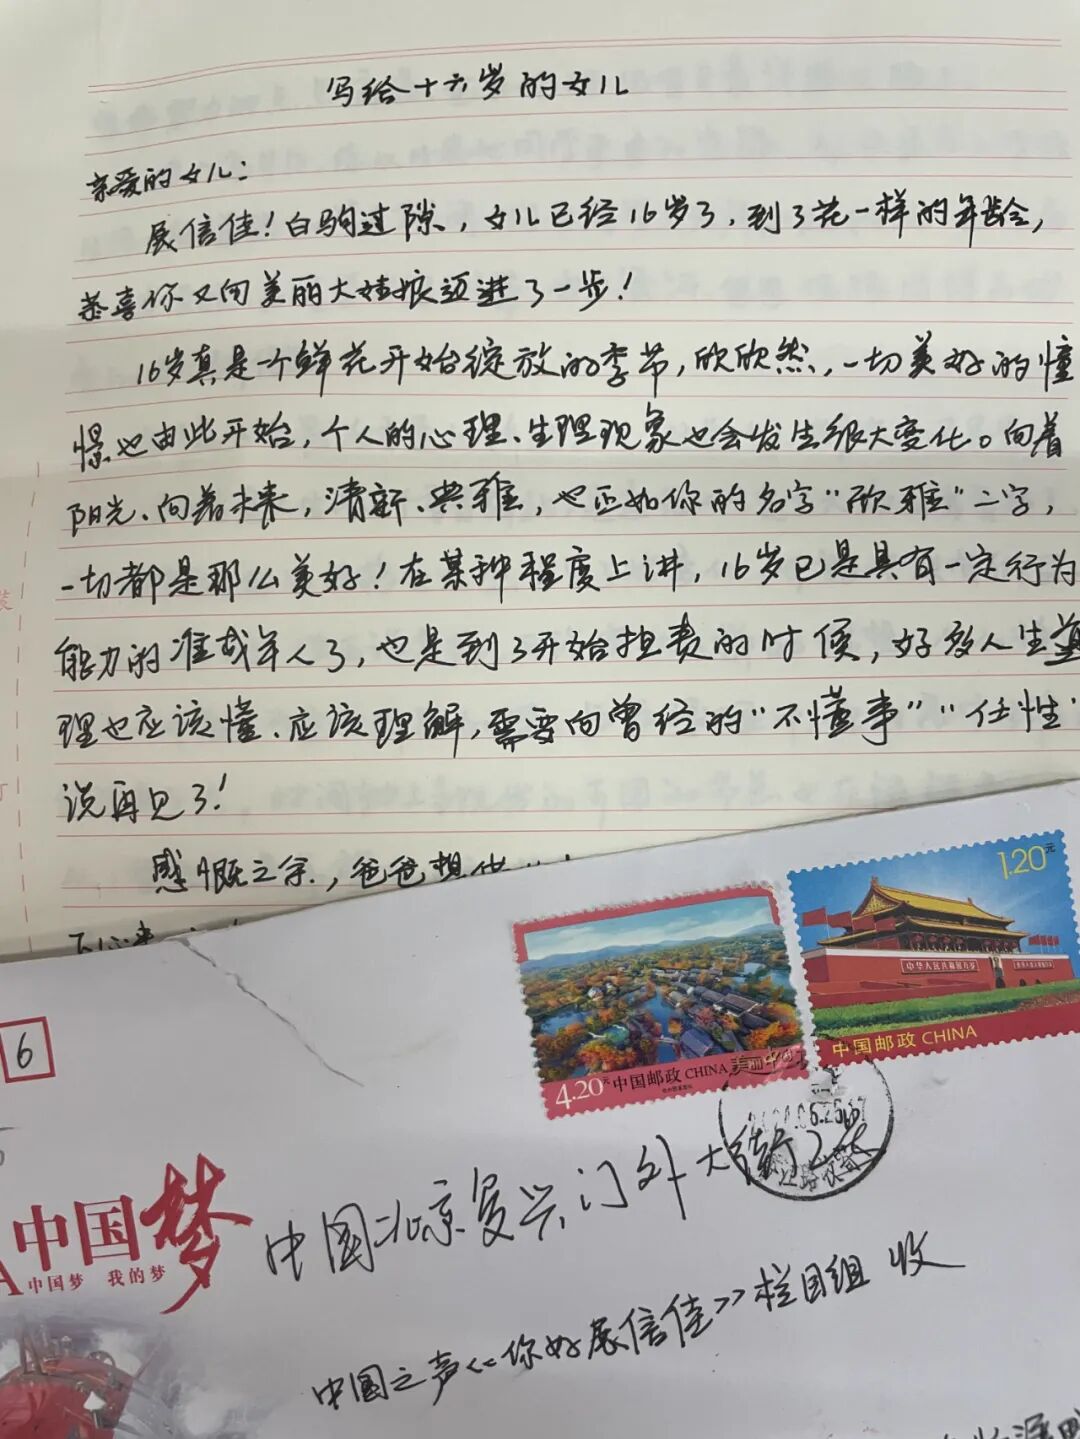 写给十六岁的女儿
亲爱的女儿：
展信佳！白驹过隙，女儿已经16岁了，到了花一样的年龄，
恭喜你又向美丽大姑娘迈进了一步！
16岁真是一个鲜花开始绽放的季节，欣欣然，一切美好的憧
憬也由此开始，个人的心理、生理现象也会发生很大变化。向着
阳光、向着未来，清新、典雅，也正如你的名字“欣雅”二字，
一切都是那么美好！在某种程度上讲，16岁已是具有一定行为
能力的准成年人了，也是到了开始担责的时候，好多人生道
理也应该懂、应该理解，需要向曾经的“不懂事”“任性”
说再见了！
感慨之余，爸爸想
1.20元
中华人民共和国万岁
中国邮政 CHINA
4.20元 中国邮政 CHINA 美丽中国
6
中国梦
中国梦 我的梦
中国北京复兴门外大街2号
中国之声《你好展信佳》栏目组 收